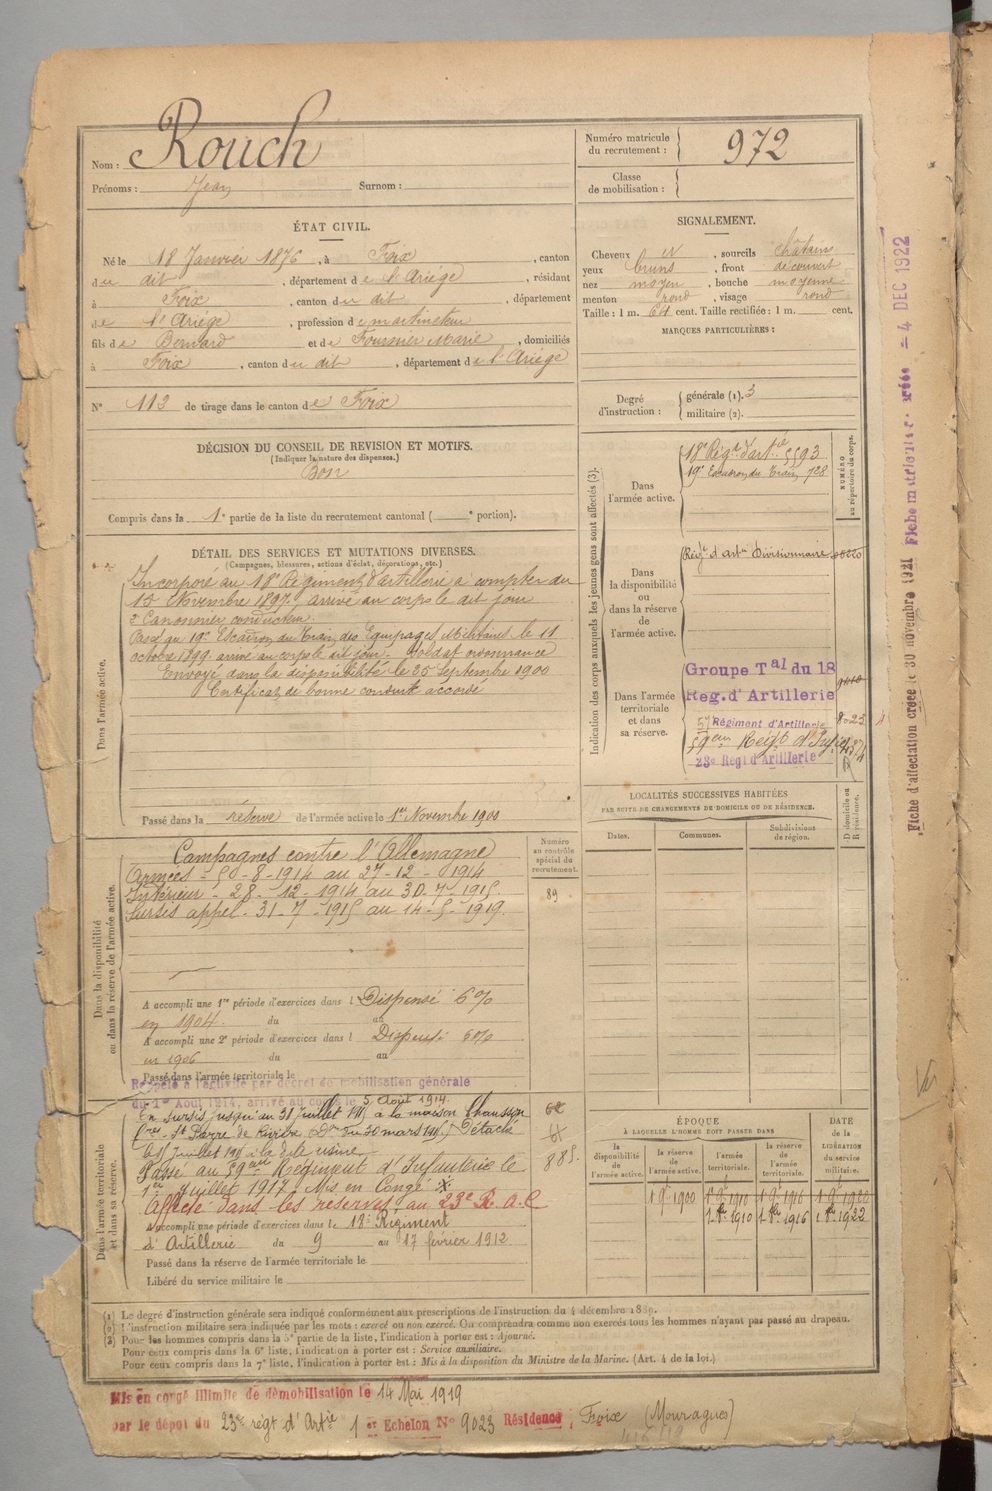 Nom : Rouch
Prénoms : Jean Surnom :
Numéro matricule du recrutement : 972
Classe de mobilisation :
ÉTAT CIVIL.
Né le 18 Janvier 1876, à Foix, canton
du dit, département de l'Ariège, résidant
à Foix, canton du dit, département
de l'Ariège, profession de
fils de Bernard et de Fournier Marie, domiciliés
à Foix, canton du dit, département de l'Ariège
N° 113 de tirage dans le canton de Foix
SIGNALEMENT.
Cheveux N, sourcils châtains
yeux bruns, front découvert
nez moyen, bouche moyenne
menton rond, visage rond
Taille : 1 m. 64 cent. Taille rectifiée : 1 m. cent.
MARQUES PARTICULIÈRES :
Degré d'instruction : générale (1). 3
militaire (2).
DÉCISION DU CONSEIL DE REVISION ET MOTIFS.
(Indiquer la nature des dispenses.)
Bon
Compris dans la 1e partie de la liste du recrutement cantonal ( e portion).
Indication des corps auxquels les jeunes gens sont affectés (3).
NUMÉRO au répertoire du corps.
Dans l'armée active.
18e Régt d'artie 5593
19e Escadron du Train 728
Dans la disponibilité ou dans la réserve de l'armée active.
Régt d'artie Divisionnaire
Dans l'armée territoriale et dans sa réserve.
Groupe Tal du 18
Reg. d'Artillerie
57 Régiment d'Artillerie 8023
59eme Regt d'Infie
23e Regt d'Artillerie
DÉTAIL DES SERVICES ET MUTATIONS DIVERSES.
(Campagnes, blessures, actions d'éclat, décorations, etc.)
Dans l'armée active.
Incorporé au 18e Régiment d'artillerie à compter du
15 Novembre 1897, arrivé au corps le dit jour
2e Canonnier conducteur.
Passé au 19e Escadron du Train des Equipages Militaires le 11
octobre 1899 arrivé au corps le dit jour. Soldat ordonnance
Envoyé dans la disponibilité le 25 Septembre 1900
Certificat de bonne conduite accordé
Passé dans la réserve de l'armée active le 1er Novembre 1900
LOCALITÉS SUCCESSIVES HABITÉES
PAR SUITE DE CHANGEMENTS DE DOMICILE OU DE RÉSIDENCE.
Dates. Communes. Subdivisions de région.
D domicile ou R résidence.
Dans la disponibilité ou dans la réserve de l'armée active.
Numéro au contrôle spécial du recrutement.
Campagnes contre l'Allemagne
Armées - 50-8-1914 au 27-12-1914
Intérieur - 28-12-1914 au 30-7-1915.
Sursis appel - 31-7-1915 au 14-5-1919.
89
A accompli une 1re période d'exercices dans l Dispensé 6%
en 1904. du au
A accompli une 2e période d'exercices dans l Dispensé 6%
en 1906 du au
Passé dans l'armée territoriale le
Rappelé à l'activité par décret de mobilisation générale
du 1er Août 1914, arrivé au corps le 5 Août 1914.
Dans l'armée territoriale et dans sa réserve.
En sursis jusqu'au 31 juillet 1915 à la maison Chausson
St Pierre de Rivière Don du 30 mars 1915 Détaché
le 1er juillet 1915 à la dite usine.
Passé au 59eme Régiment d'Infanterie le
1er Juillet 1917 Mis en Congé
Affecté dans les réserves, au 23e R.A.C
A accompli une période d'exercices dans le 18e Régiment
d'Artillerie du 9 au 17 février 1912.
Passé dans la réserve de l'armée territoriale le
Libéré du service militaire le
885.
ÉPOQUE
À LAQUELLE L'HOMME DOIT PASSER DANS
DATE de la LIBÉRATION du service militaire.
la disponibilité de l'armée active.
la réserve de l'armée active.
l'armée territoriale.
la réserve de l'armée territoriale.
1 9e 1900 1 9e 1910 1 9e 1916 1 9e 1922
1 8e 1910 1 8e 1916 1 8e 1922
(1) Le degré d'instruction générale sera indiqué conformément aux prescriptions de l'instruction du 4 décembre 1889.
(2) L'instruction militaire sera indiquée par les mots : exercé ou non exercé. On comprendra comme non exercés tous les hommes n'ayant pas passé au drapeau.
(3) Pour les hommes compris dans la 5e partie de la liste, l'indication à porter est : Ajourné.
Pour ceux compris dans la 6e liste, l'indication à porter est : Service auxiliaire.
Pour ceux compris dans la 7e liste, l'indication à porter est : Mis à la disposition du Ministre de la Marine. (Art. 4 de la loi.)
Mis en congé illimité de démobilisation le 14 Mai 1919
par le dépôt du 23e régt d'Artie 1er Echelon N° 9023 Résidence, Foix (Mouragues)
Fiche d'affectation créée le 30 novembre 1921 Fiche matriculaire créée = 4 DEC 1922